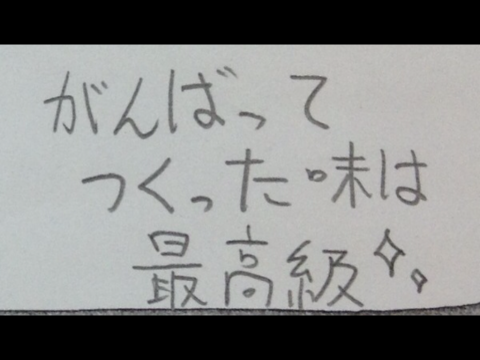 がんばって
つくった味は
最高級✧✧